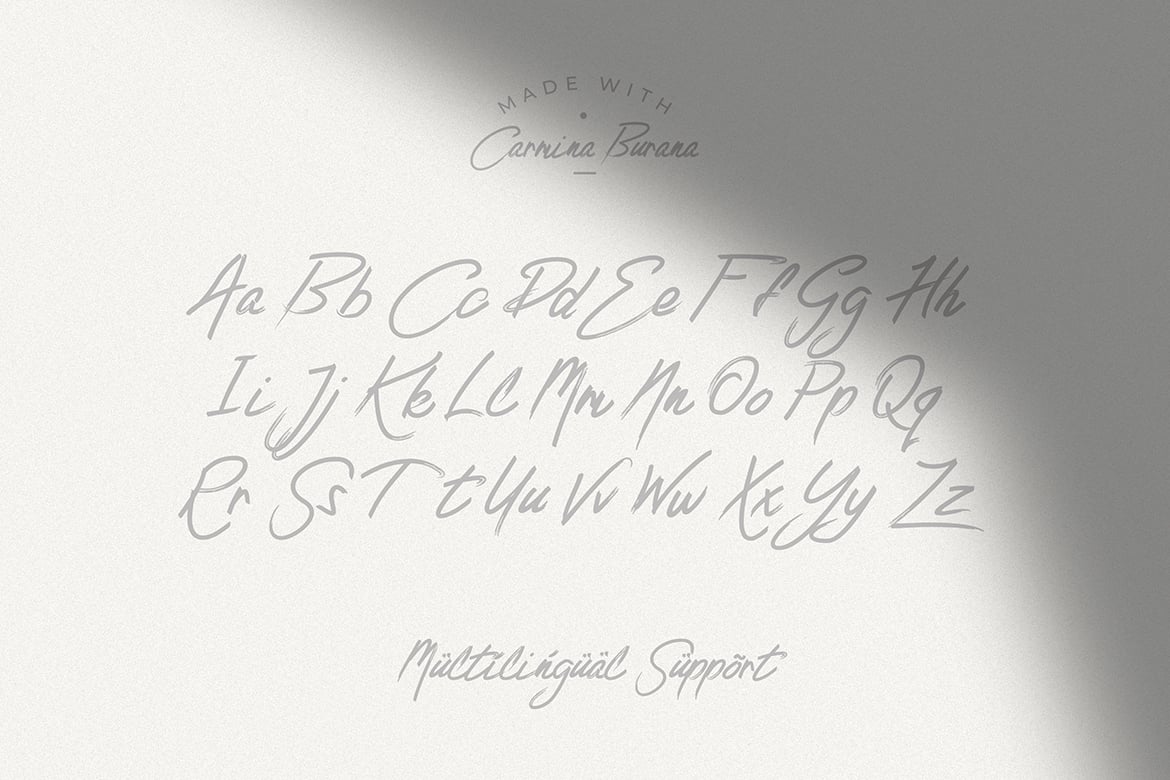 MADE WITH
Carmina Burana
Aa Bb Cc Dd Ee Ff Gg Hh
Ii Jj Kk Ll Mm Nn Oo Pp Qq
Rr Ss Tt Uu Vv Ww Xx Yy Zz
Mültílińgüäl Süppõrt